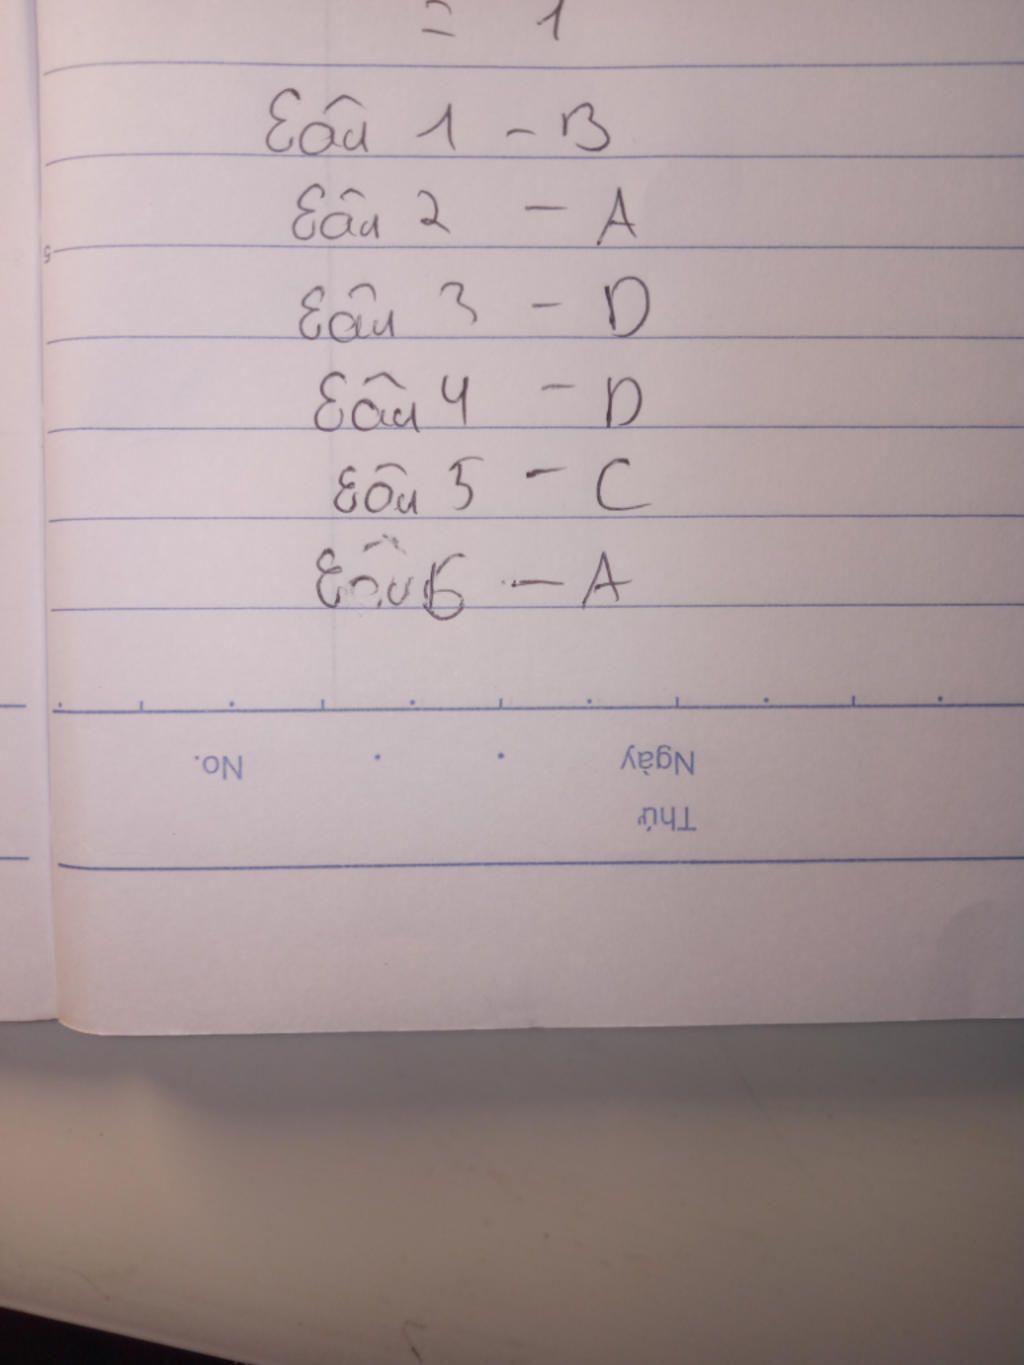 = 1
Câu 1 - B
Câu 2 - A
Câu 3 - D
Câu 4 - D
Câu 5 - C
Câu 6 - A
5
No.
Ngày
Thứ